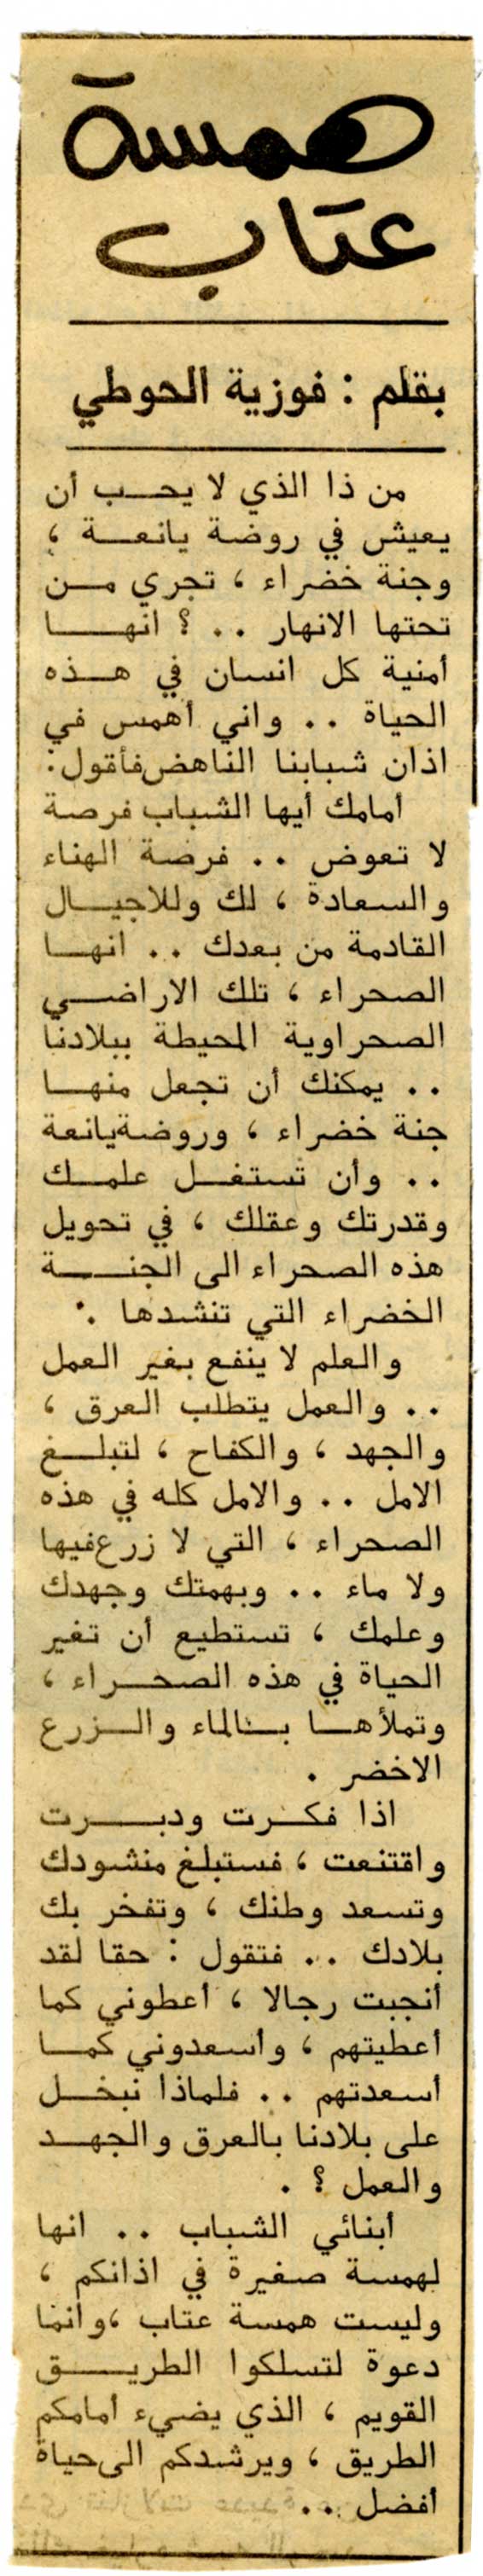 همسة
عتاب
بقلم : فوزية الحوطي
من ذا الذي لا يحب أن
يعيش في روضة يانعة ،
وجنة خضراء ، تجري من
تحتها الانهار . . ؟ انها
أمنية كل انسان في هذه
الحياة . . واني أهمس في
اذان شبابنا الناهض فأقول :
أمامك أيها الشباب فرصة
لا تعوض . . فرصة الهناء
والسعادة ، لك وللاجيال
القادمة من بعدك . . انها
الصحراء ، تلك الاراضي
الصحراوية المحيطة ببلادنا
. . يمكنك أن تجعل منها
جنة خضراء ، وروضة يانعة
. . وأن تستغل علمك
وقدرتك وعقلك ، في تحويل
هذه الصحراء الى الجنة
الخضراء التي تنشدها .
والعلم لا ينفع بغير العمل
. . والعمل يتطلب العرق ،
والجهد ، والكفاح ، لتبلغ
الامل . . والامل كله في هذه
الصحراء ، التي لا زرع فيها
ولا ماء . . وبهمتك وجهدك
وعلمك ، تستطيع أن تغير
الحياة في هذه الصحراء ،
وتملأها بالماء والزرع
الاخضر .
اذا فكرت ودبرت
واقتنعت ، فستبلغ منشودك
وتسعد وطنك ، وتفخر بك
بلادك . . فتقول : حقا لقد
أنجبت رجالا ، أعطوني كما
أعطيتهم ، وأسعدوني كما
أسعدتهم . . فلماذا نبخل
على بلادنا بالعرق والجهد
والعمل ؟ .
أبنائي الشباب . . انها
لهمسة صغيرة في اذانكم ،
وليست همسة عتاب ، وانما
دعوة لتسلكوا الطريق
القويم ، الذي يضيء أمامكم
الطريق ، ويرشدكم الى حياة
أفضل . .